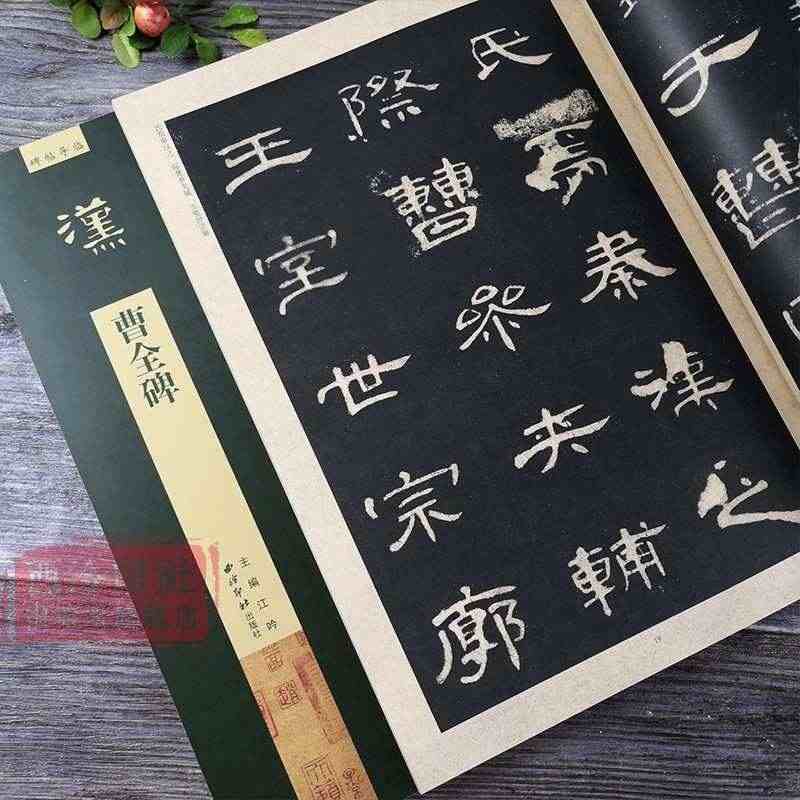 碑帖导临
漢
曹全碑
主编 江吟
西泠印社出版社
氏焉秦漢之
際曹參夾輔
王室世宗廓